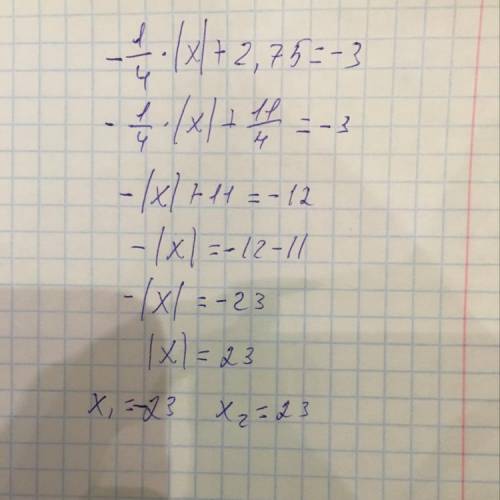 -1/4 · |x| + 2,75 = -3
-1/4 · |x| + 11/4 = -3
-|x| + 11 = -12
-|x| = -12 - 11
-|x| = -23
|x| = 23
x₁ = -23 x₂ = 23